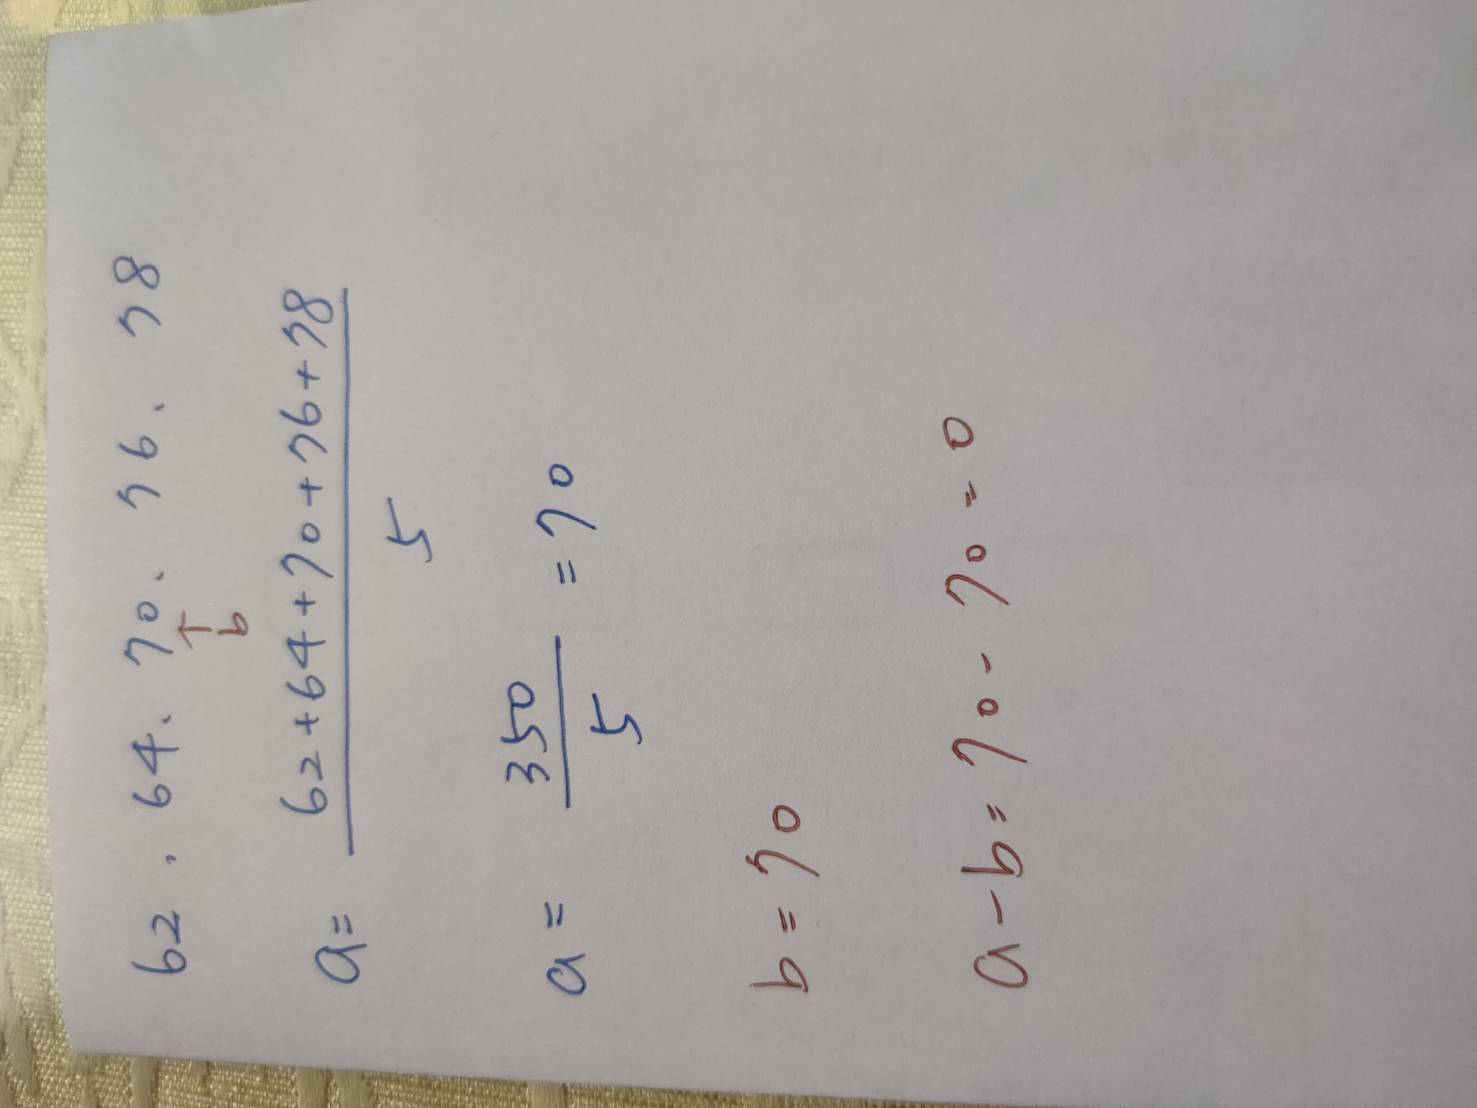 62、64、70、76、78
↑
b
a = 62+64+70+76+78
5
a = 350 = 70
5
b = 70
a - b = 70 - 70 = 0